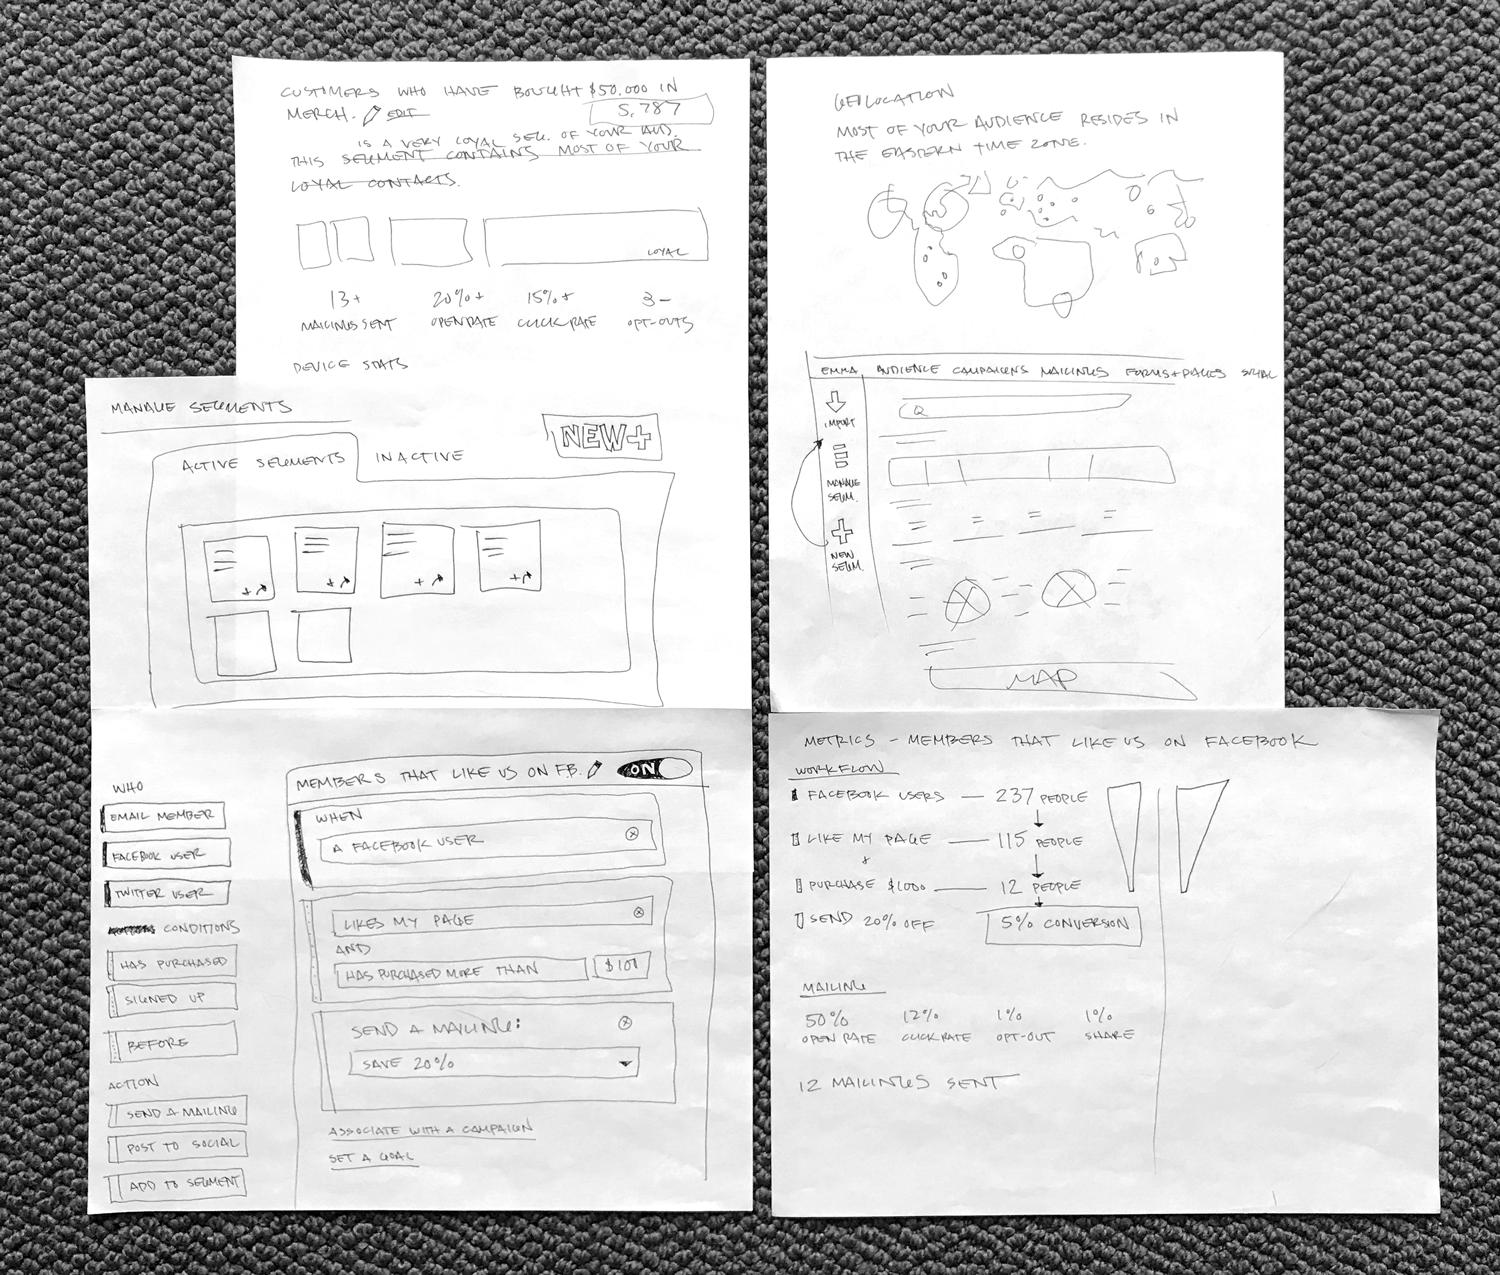 CUSTOMERS WHO HAVE BOUGHT $50,000 IN
MERCH. EDIT
5,787
IS A VERY LOYAL SEG. OF YOUR AUD.
THIS SEGMENT CONTAINS MOST OF YOUR
LOYAL CONTACTS.
LOYAL
13+
20%+
15%+
3-
MAILINGS SENT
OPEN RATE
CLICK RATE
OPT-OUTS
DEVICE STATS
GEOLOCATION
MOST OF YOUR AUDIENCE RESIDES IN
THE EASTERN TIME ZONE.
EMMA AUDIENCE CAMPAIGNS MAILINGS FORMS+PAGES SOCIAL
IMPORT
MANAGE
SEGM.
NEW
SEGM.
MAP
MANAGE SEGMENTS
NEW+
ACTIVE SEGMENTS
INACTIVE
WHO
EMAIL MEMBER
FACEBOOK USER
TWITTER USER
CONDITIONS
HAS PURCHASED
SIGNED UP
BEFORE
ACTION
SEND A MAILING
POST TO SOCIAL
ADD TO SEGMENT
MEMBERS THAT LIKE US ON F.B.
ON
WHEN
A FACEBOOK USER
LIKES MY PAGE
AND
HAS PURCHASED MORE THAN
SEND A MAILING:
SAVE 20%
ASSOCIATE WITH A CAMPAIGN
SET A GOAL
METRICS - MEMBERS THAT LIKE US ON FACEBOOK
WORKFLOW
FACEBOOK USERS — 237 PEOPLE
LIKE MY PAGE — 115 PEOPLE
+
PURCHASE $1000 — 12 PEOPLE
SEND 20% OFF
5% CONVERSION
MAILING
50%
12%
1%
1%
OPEN RATE
CLICK RATE
OPT-OUT
SHARE
12 MAILINGS SENT